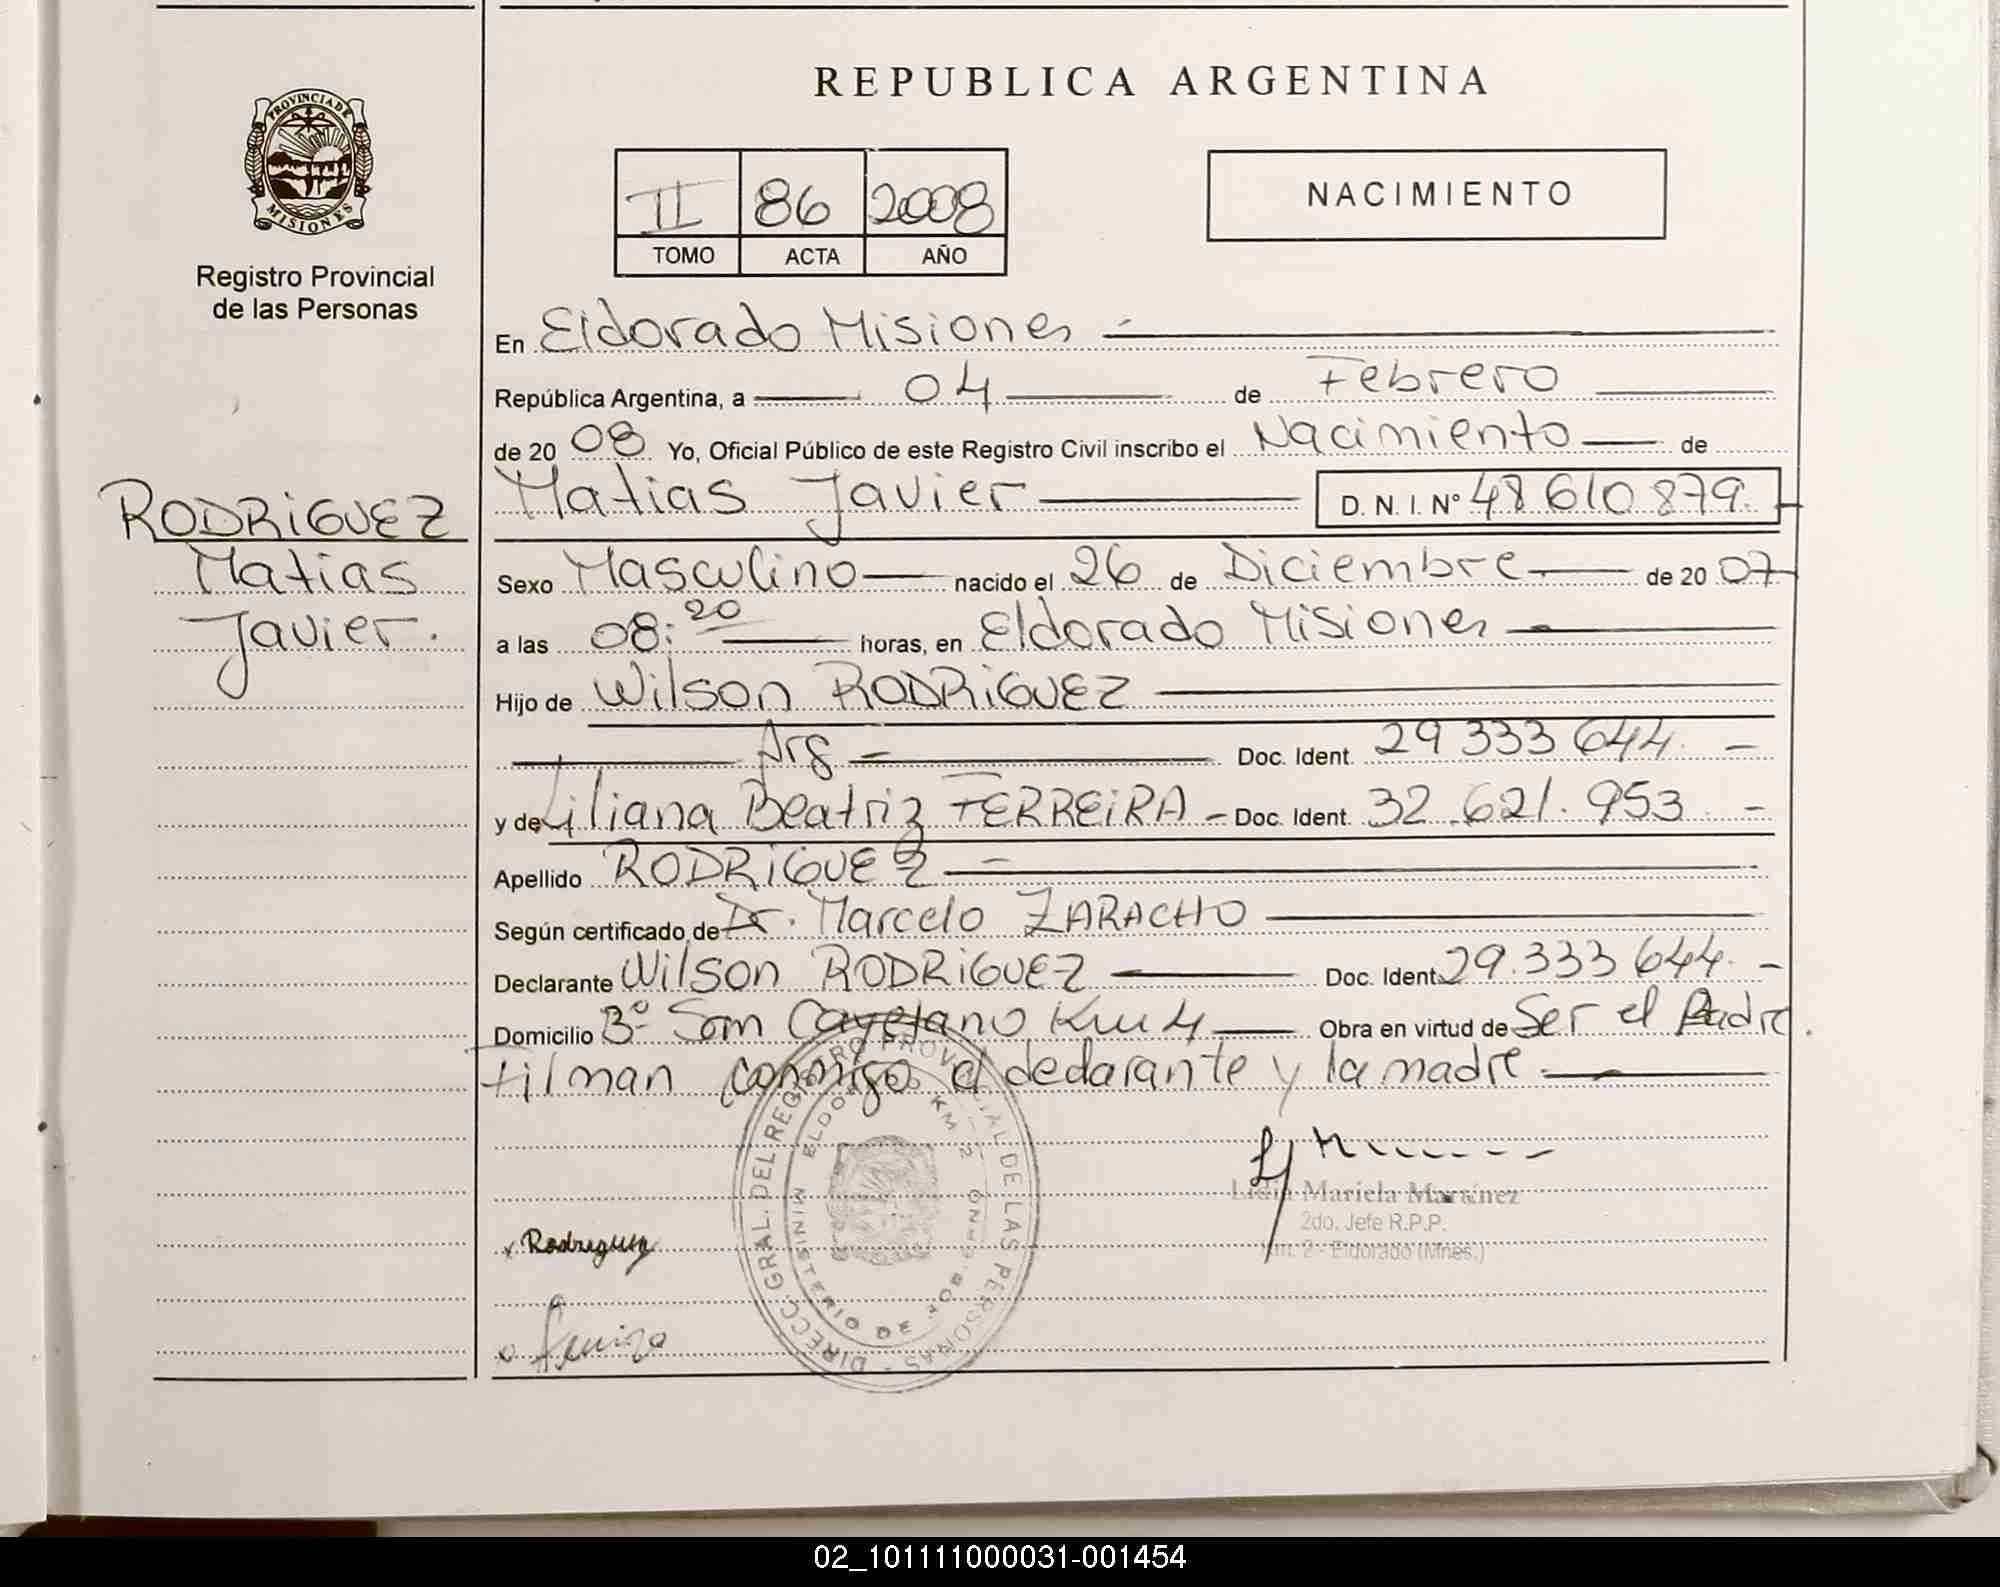 REPUBLICA ARGENTINA
PROVINCIA DE MISIONES
Registro Provincial
de las Personas
II 86 2008
TOMO ACTA AÑO
NACIMIENTO
RODRiGUEZ
Matias
Javier.
En Eldorado Misiones
República Argentina, a 04 de Febrero
de 20 08 Yo, Oficial Público de este Registro Civil inscribo el Nacimiento de
Matias Javier D. N. I. N° 48 610 879.
Sexo Masculino nacido el 26 de Diciembre de 20 07
a las 08:20 horas, en Eldorado Misiones
Hijo de Wilson RODRiGUEZ
Arg Doc. Ident. 29 333 644. -
y de Liliana Beatriz FERREiRA - Doc. Ident. 32.621.953 -
Apellido RODRiGUEZ
Según certificado de Dr. Marcelo ZARACHO
Declarante Wilson RODRiGUEZ Doc. Ident. 29.333 644. -
Domicilio B° San Cayetano Km 4 Obra en virtud de Ser el Padre.
Filman conmigo el declarante y la madre
DIRECC. GRAL. DEL REGISTRO PROVINCIAL DE LAS PERSONAS -
MINISTERIO DE GOB.
ELDORADO KM 2
Lidia Mariela Martinez
2do. Jefe R.P.P.
Km. 2 - Eldorado (Mnes.)
x Rodriguez
02_101111000031-001454